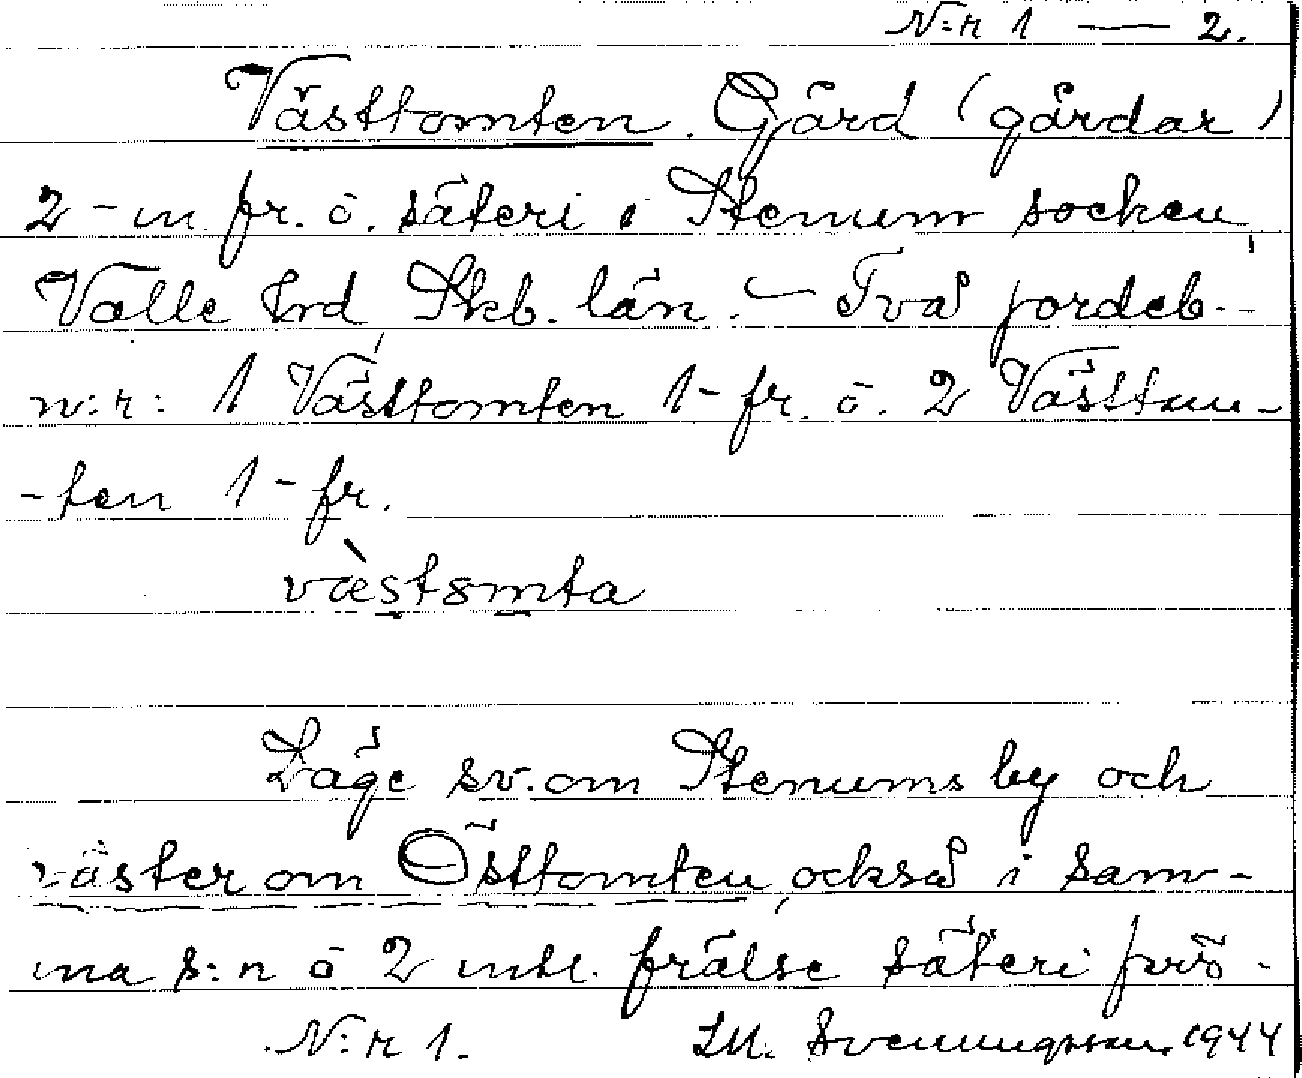 N:r 1 — 2.
Västtomten. Gård (gårdar)
2-m fr. o. säteri i Stenum socken,
Valle hrd Skb. län. - Två jordeb.-
n:r: 1 Västtomten 1-fr. o. 2 Västtom-
-ten 1-fr.
Läge sv. om Stenums by och
väster om Östtomten, också i sam-
ma s:n o 2 mtl. frälse säteri
N:r 1. Svenungsson 1944